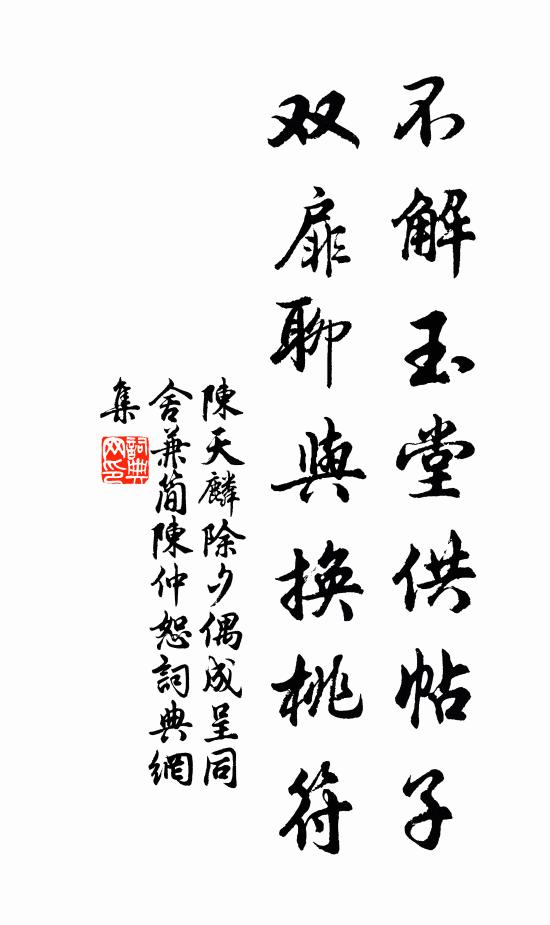 不解玉堂供帖子
双扉聊與換桃符
陳天麟除夕偶成呈同
舍兼简陳仲恕詞典網
集
詞典
网